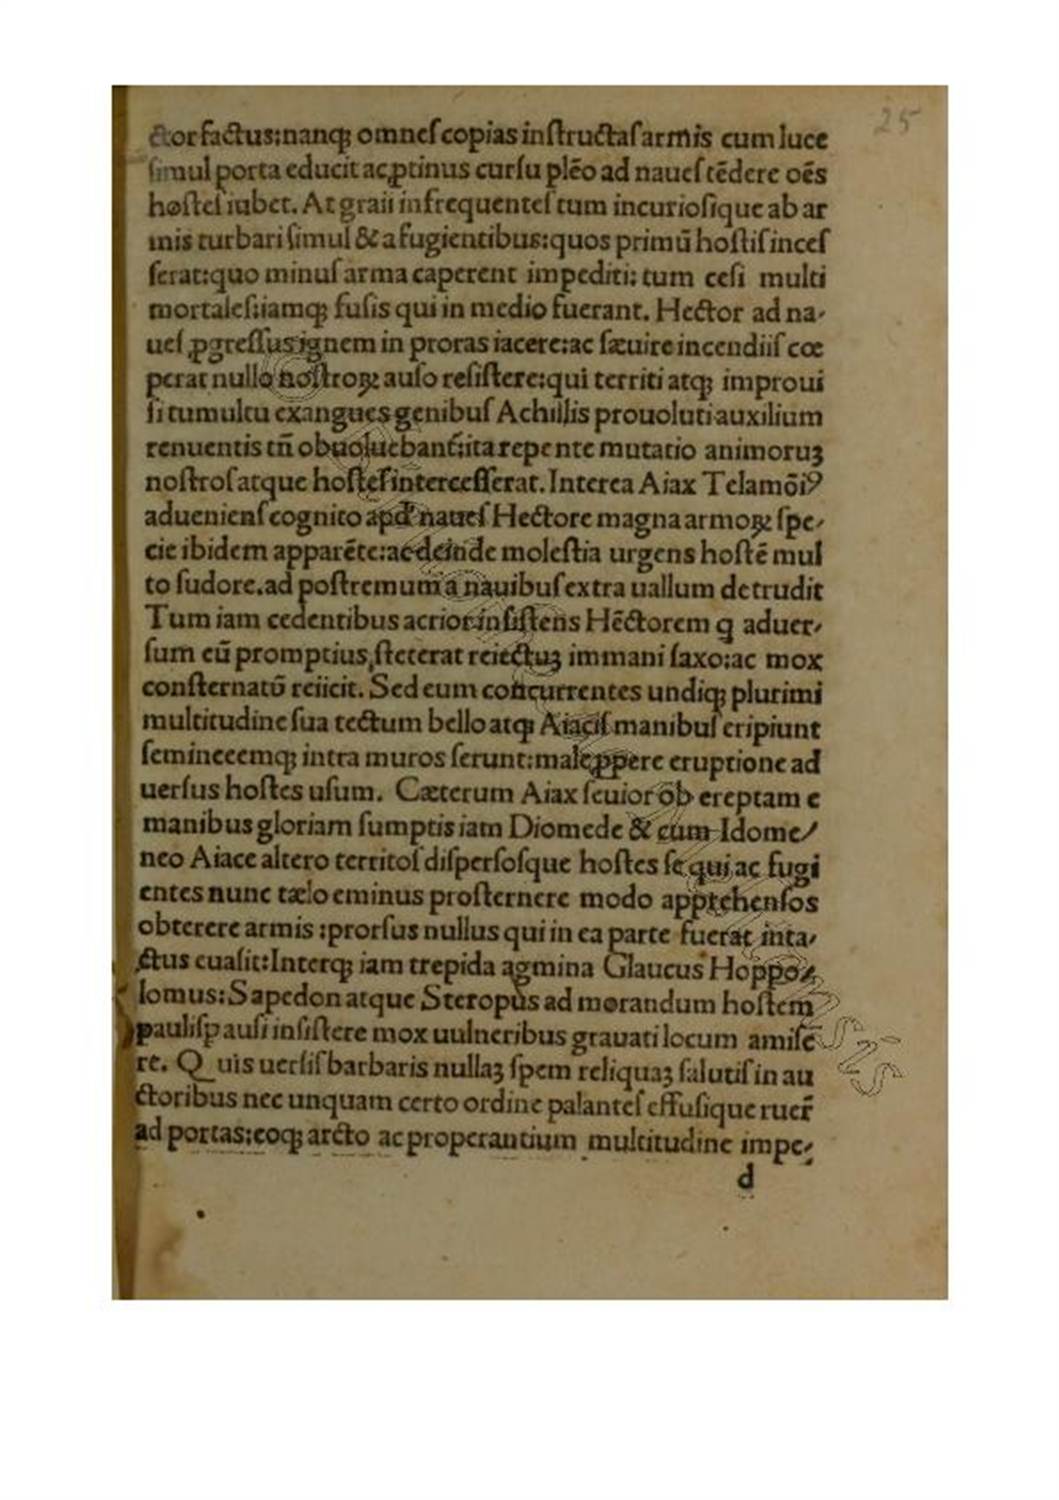 25
ctor factus:nanq; omneſ copias inſtructaſ armis cum luce
ſimul porta educit ac ꝓtinus curſu plēo ad naueſ tēdere oēs
hoſteſ iubet. At graii infrequenteſ tum incurioſique ab ar
mis turbari ſimul & a fugientibus:quos primū hoſtiſ inceſ
ſerat:quo minuſ arma caperent impediti: tum ceſi multi
mortaleſ:iamq; fuſis qui in medio fuerant. Hector ad na-
ueſ ꝓgreſſus ignem in proras iacere:ac ſæuire incendiiſ cœ
perat nullo noſtroꝝ auſo reſiſtere:qui territi atq; improui
ſi tumultu exangues genibuſ Achillis prouoluti auxilium
renuentis tn̄ obuoluebant̄:ita repente mutatio animoruꝫ
noſtroſ atque hoſteſ interceſſerat. Interea Aiax Telamōiꝰ
adueniens cognito apd' naueſ Hectore magna armoꝝ ſpe-
cie ibidem apparēte:ac deinde moleſtia urgens hoſtē mul
to ſudore.ad poſtremum a nauibuſ extra uallum detrudit
Tum iam cedentibus acrior inſiſtens Hēctorem q aduer-
ſum eū promptius ſteterat reiectuꝫ immani ſaxo:ac mox
conſternatū reiicit. Sed eum concurrentes undiq; plurimi
multitudine ſua tectum bello atq; Aiaciſ manibuſ eripiunt
ſemineeemq; intra muros ferunt:male ꝓpere eruptione ad
uerſus hoſtes uſum. Cæterum Aiax ſeuior ōb ereptam e
manibus gloriam ſumptis iam Diomede & cum Idome-
neo Aiace altero territoſ diſperſoſque hoſtes ſe qui ac fugi
entes nunc tælo eminus proſternere modo appręhenſos
obterere armis :prorſus nullus qui in ea parte fuerat inta-
ctus euaſit:Interq; iam trepida agmina Glaucus Hoppo-
lomus:Sapedon atque Steropus ad morandum hoſtem
pauliſꝑ auſi inſiſtere mox uulneribus grauati locum amiſe
re. Q uis uerſiſ barbaris nullaꝫ ſpem reliquaꝫ ſalutiſ in au
ctoribus nec unquam certo ordine palanteſ effuſique ruer̄
ad portas:eoq; arcto ac properantium multitudine impe-
d